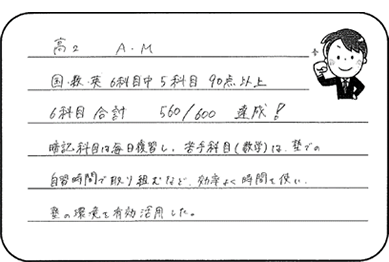 高2 A.M
国・数・英 6科目中 5科目 90点以上
6科目 合計 560/600 達成!
暗記科目は毎日復習し、苦手科目(数学)は、塾での
自習時間で取り組むなど、効率よく時間を使い、
塾の環境を有効活用した。